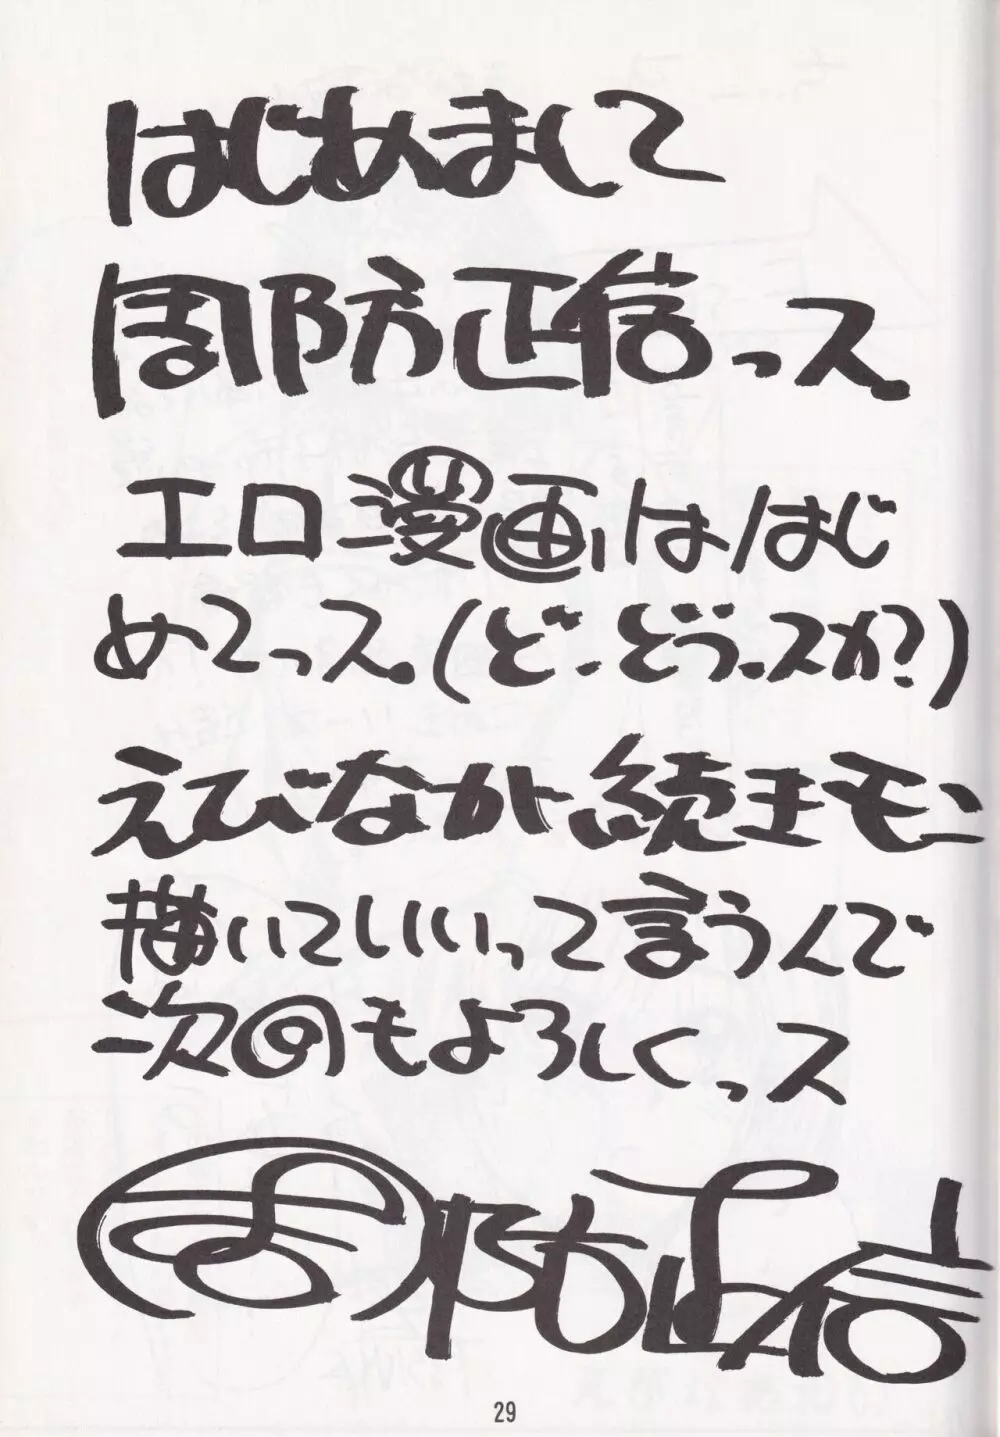 はじめまして
周防正信っス
エロ漫画ははじ
めてっス。(ど、どうっスか?)
えびなが続きモン
描いていいって言うんで
次回もよろしくっス
周防正信
29